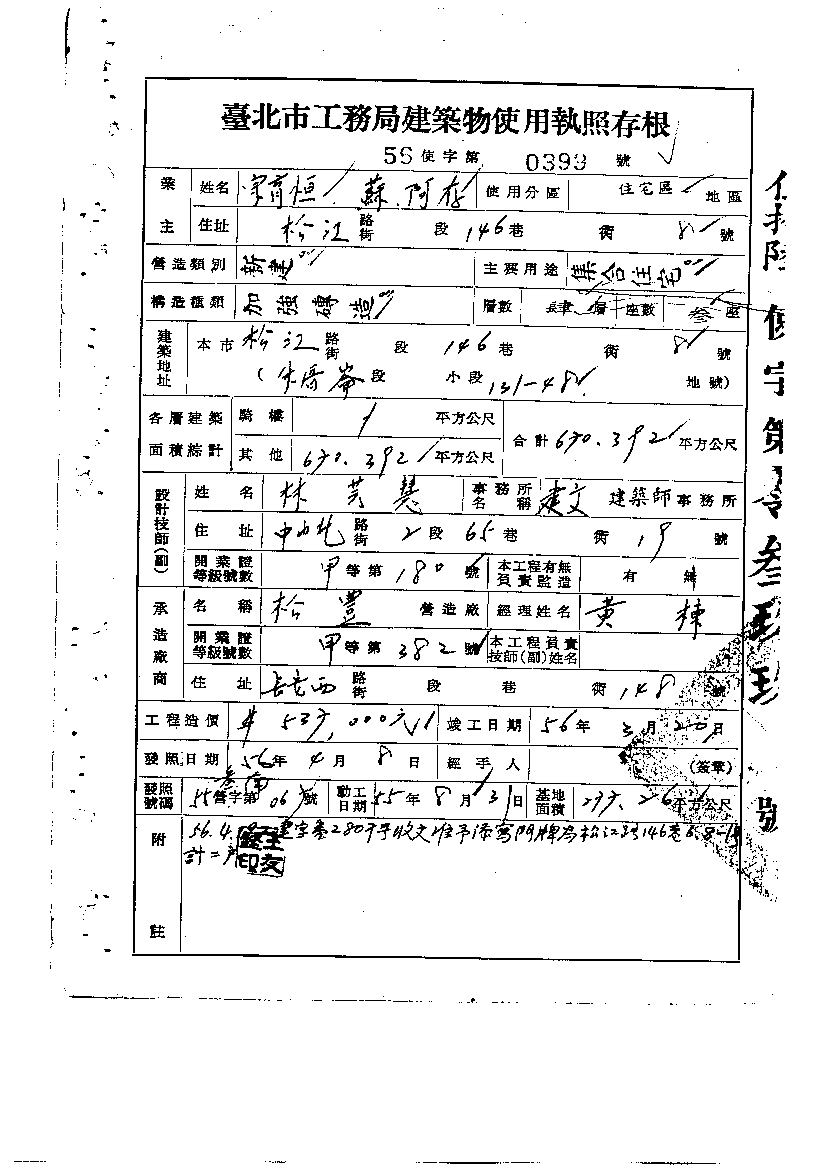 臺北市工務局建築物使用執照存根
56使字第 0399 號
業主 姓名 宋育恒 蘇阿存 使用分區 住宅區 地區
住址 松江路街 段 146巷 衖 8 號
營造類別 新建 主要用途 集合住宅
構造種類 加強磚造 層數 層 座數 叁座
建築地址 本市 松江路街 段 146巷 衖 8 號
(朱厝崙段 小段 131-48 地號)
各層建築面積綜計 騎樓 平方公尺 合計 670.392 平方公尺
其他 670.392 平方公尺
設計技師(副) 姓名 林芸慧 事務所名稱 建文建築師事務所
住址 中山北路街 2段 65巷 衖 19 號
開業證等級號數 甲等第 180 號 本工程有無負責監造 有 無
承造廠商 名稱 松豐 營造廠 經理姓名 黃棟
開業證等級號數 甲等第 382 號 本工程負責技師(副)姓名
住址 長安西路街 段 巷 衖 148 號
工程造價 竣工日期 56年 3月 20日
發照日期 56年 4月 8日 經手人 (簽章)
發照號碼 55營字第 號 動工日期 55年 8月 31日 基地面積 平方公尺
附註 56.4. 建字第280 號收文准予添寫門牌為松江路146巷6.8
計二戶
使字第零叁玖玖號